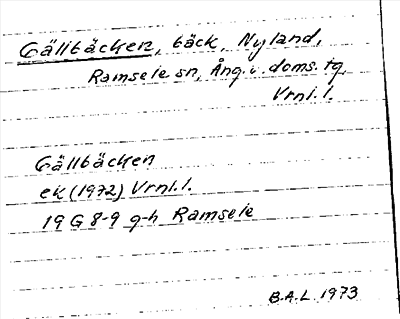 Gällbäcken, bäck, Nyland,
Ramsele sn, Ång. v. doms. tg.
Vrnl. l.
Gällbäcken
ek (1972) Vrnl. l.
19 G 8-9 g-h Ramsele
B.A.L. 1973